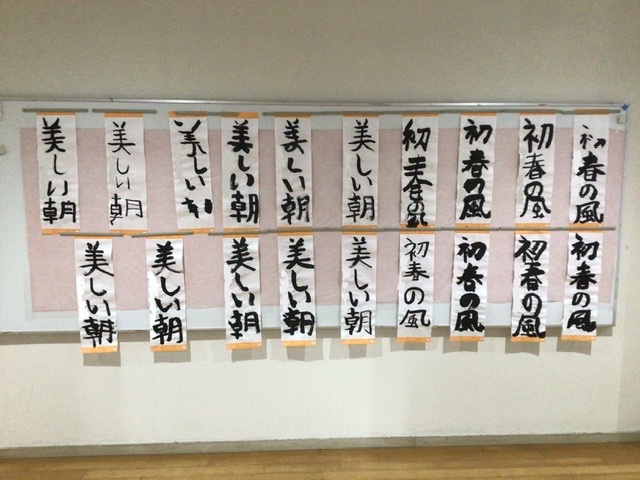 初春の風
初春の風
初春の風
初春の風
美しい朝
美しい朝
美しい朝
美しい
美しい朝
美しい朝
初春の風
初春の風
初春の風
初春の風
美しい朝
美しい朝
美しい朝
美しい朝
美しい朝